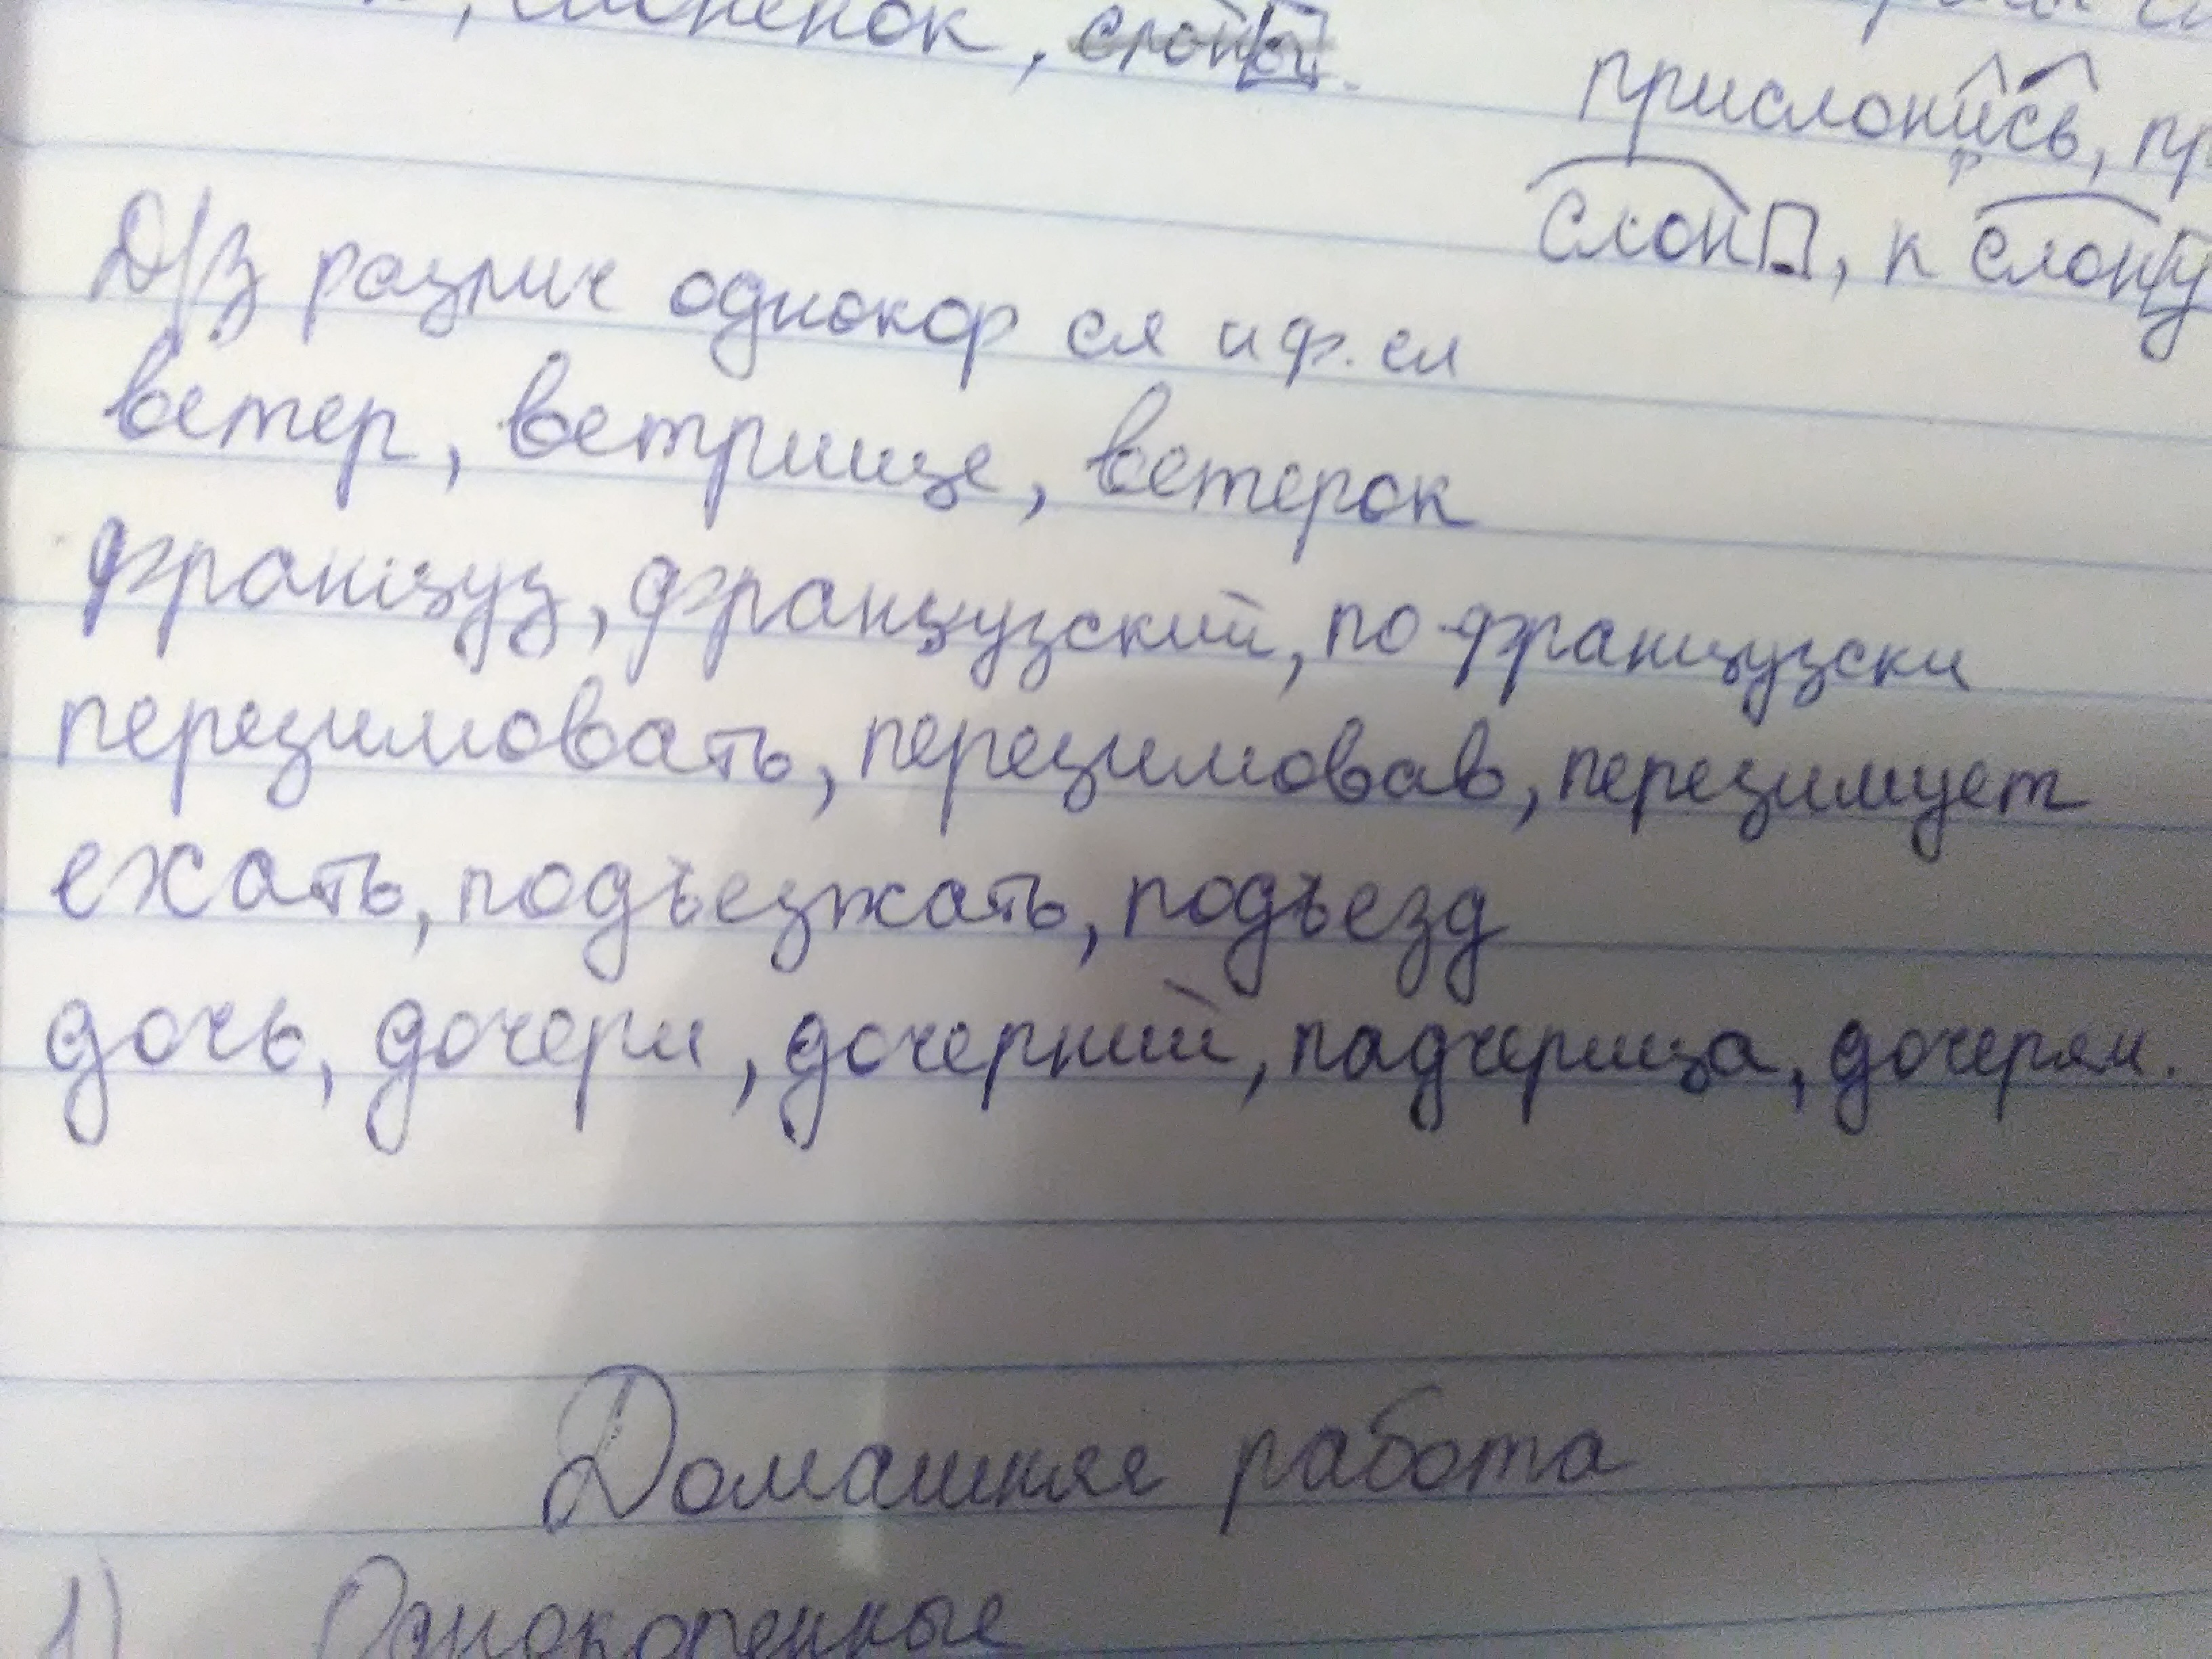 слонёнок, слоны.
прислонись,
слон, к слону
Д/З различ однокор сл и ф. сл
ветер, ветрище, ветерок
француз, французский, по-французски
перезимовать, перезимовав, перезимует
ехать, подъезжать, подъезд
дочь, дочери, дочерний, падчерица, дочерям.
Домашняя работа
1) Однокоренные